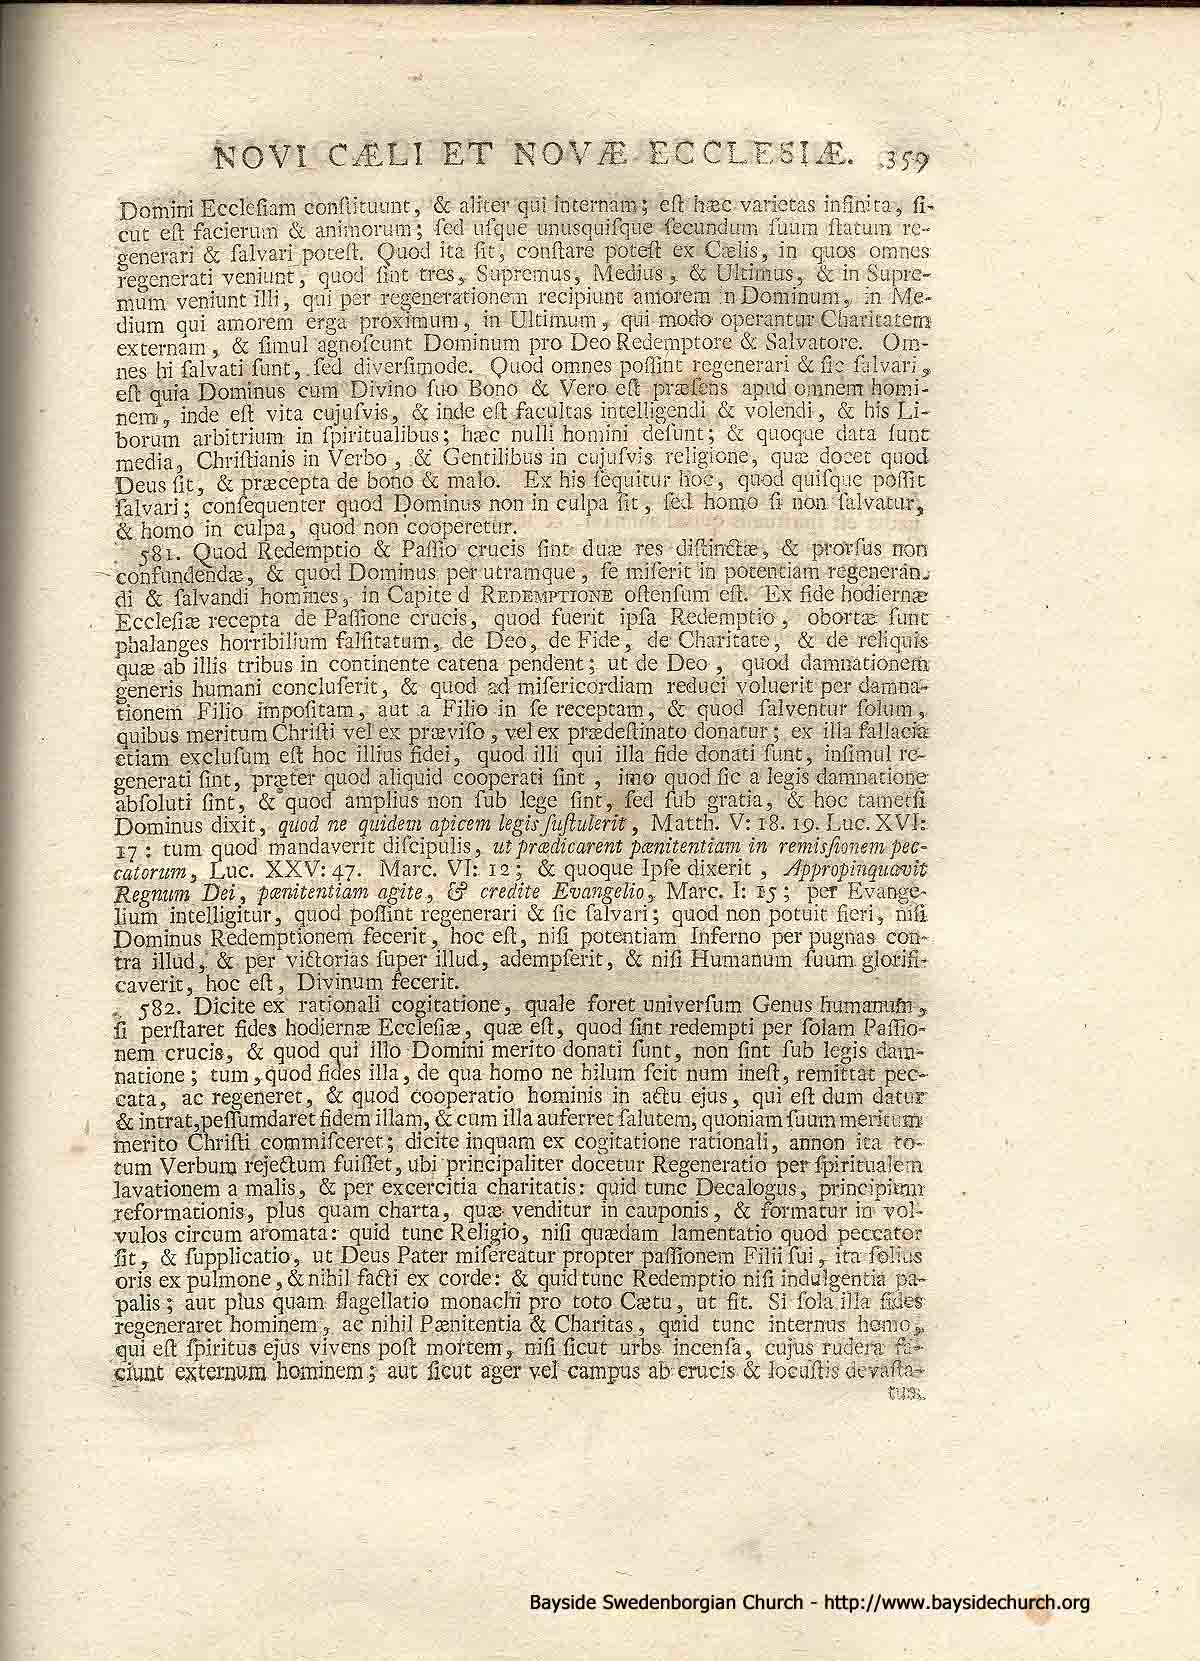 NOVI CÆLI ET NOVÆ ECCLESIÆ. 359
Domini Eccleſiam conſtituunt, & aliter qui internam; eſt hæc varietas infinita, ſi-
cut eſt facierum & animorum; ſed uſque unusquiſque ſecundum ſuum ſtatum re-
generari & ſalvari poteſt. Quod ita ſit, conſtare poteſt ex Cælis, in quos omnes
regenerati veniunt, quod ſint tres, Supremus, Medius, & Ultimus, & in Supre-
mum veniunt illi, qui per regenerationem recipiunt amorem in Dominum, in Me-
dium qui amorem erga proximum, in Ultimum, qui modo operantur Charitatem
externam, & ſimul agnoſcunt Dominum pro Deo Redemptore & Salvatore. Om-
nes hi ſalvati ſunt, ſed diverſimode. Quod omnes poſſint regenerari & ſic ſalvari,
eſt quia Dominus cum Divino ſuo Bono & Vero eſt præſens apud omnem homi-
nem, inde eſt vita cujuſvis, & inde eſt facultas intelligendi & volendi, & his Li-
borum arbitrium in ſpiritualibus; hæc nulli homini deſunt; & quoque data ſunt
media, Chriſtianis in Verbo, & Gentilibus in cujuſvis religione, quæ docet quod
Deus ſit, & præcepta de bono & malo. Ex his ſequitur hoc, quod quiſque poſſit
ſalvari; conſequenter quod Dominus non in culpa ſit, ſed homo ſi non ſalvatur,
& homo in culpa, quod non cooperetur.
581. Quod Redemptio & Paſſio crucis ſint duæ res diſtinctæ, & prorſus non
confundendæ, & quod Dominus per utramque, ſe miſerit in potentiam regeneran-
di & ſalvandi homines, in Capite d REDEMPTIONE oſtenſum eſt. Ex fide hodiernæ
Eccleſiæ recepta de Paſſione crucis, quod fuerit ipſa Redemptio, obortæ ſunt
phalanges horribilium falſitatum, de Deo, de Fide, de Charitate, & de reliquis
quæ ab illis tribus in continente catena pendent; ut de Deo, quod damnationem
generis humani concluſerit, & quod ad miſericordiam reduci voluerit per damna-
tionem Filio impoſitam, aut a Filio in ſe receptam, & quod ſalventur ſolum,
quibus meritum Chriſti vel ex præviſo, vel ex prædeſtinato donatur; ex illa fallacia
etiam excluſum eſt hoc illius fidei, quod illi qui illa fide donati ſunt, inſimul re-
generati ſint, præter quod aliquid cooperati ſint, imo quod ſic a legis damnatione
abſoluti ſint, & quod amplius non ſub lege ſint, ſed ſub gratia, & hoc tametſi
Dominus dixit, quod ne quidem apicem legis ſuſtulerit, Matth. V: 18. 19. Luc. XVI:
17: tum quod mandaverit diſcipulis, ut prædicarent pœnitentiam in remiſſionem pec-
catorum, Luc. XXV: 47. Marc. VI: 12; & quoque Ipſe dixerit, Appropinquavit
Regnum Dei, pœnitentiam agite, & credite Evangelio, Marc. I: 15; per Evange-
lium intelligitur, quod poſſint regenerari & ſic ſalvari; quod non potuit fieri, niſi
Dominus Redemptionem fecerit, hoc eſt, niſi potentiam Inferno per pugnas con-
tra illud, & per victorias ſuper illud, adempſerit, & niſi Humanum ſuum glorifi-
caverit, hoc eſt, Divinum fecerit.
582. Dicite ex rationali cogitatione, quale foret univerſum Genus humanum,
ſi perſtaret fides hodiernæ Eccleſiæ, quæ eſt, quod ſint redempti per ſolam Paſſio-
nem crucis, & quod qui illo Domini merito donati ſunt, non ſint ſub legis dam-
natione; tum, quod fides illa, de qua homo ne hilum ſcit num ineſt, remittat pec-
cata, ac regeneret, & quod cooperatio hominis in actu ejus, qui eſt dum datur
& intrat, peſſumdaret fidem illam, & cum illa auferret ſalutem, quoniam ſuum meritum
merito Chriſti commiſceret; dicite inquam ex cogitatione rationali, annon ita to-
tum Verbum rejectum fuiſſet, ubi principaliter docetur Regeneratio per ſpiritualem
lavationem a malis, & per excercitia charitatis: quid tunc Decalogus, principium
reformationis, plus quam charta, quæ venditur in cauponis, & formatur in vol-
vulos circum aromata: quid tunc Religio, niſi quædam lamentatio quod peccator
ſit, & ſupplicatio, ut Deus Pater miſereatur propter paſſionem Filii ſui, ita ſolius
oris ex pulmone, & nihil facti ex corde: & quid tunc Redemptio niſi indulgentia pa-
palis; aut plus quam flagellatio monachi pro toto Cætu, ut fit. Si ſola illa fides
regeneraret hominem, ac nihil Pænitentia & Charitas, quid tunc internus homo,
qui eſt ſpiritus ejus vivens poſt mortem, niſi ſicut urbs incenſa, cujus rudera fa-
ciunt externum hominem; aut ſicut ager vel campus ab erucis & locuſtis devaſta-
tus.
Bayside Swedenborgian Church - http://www.baysidechurch.org